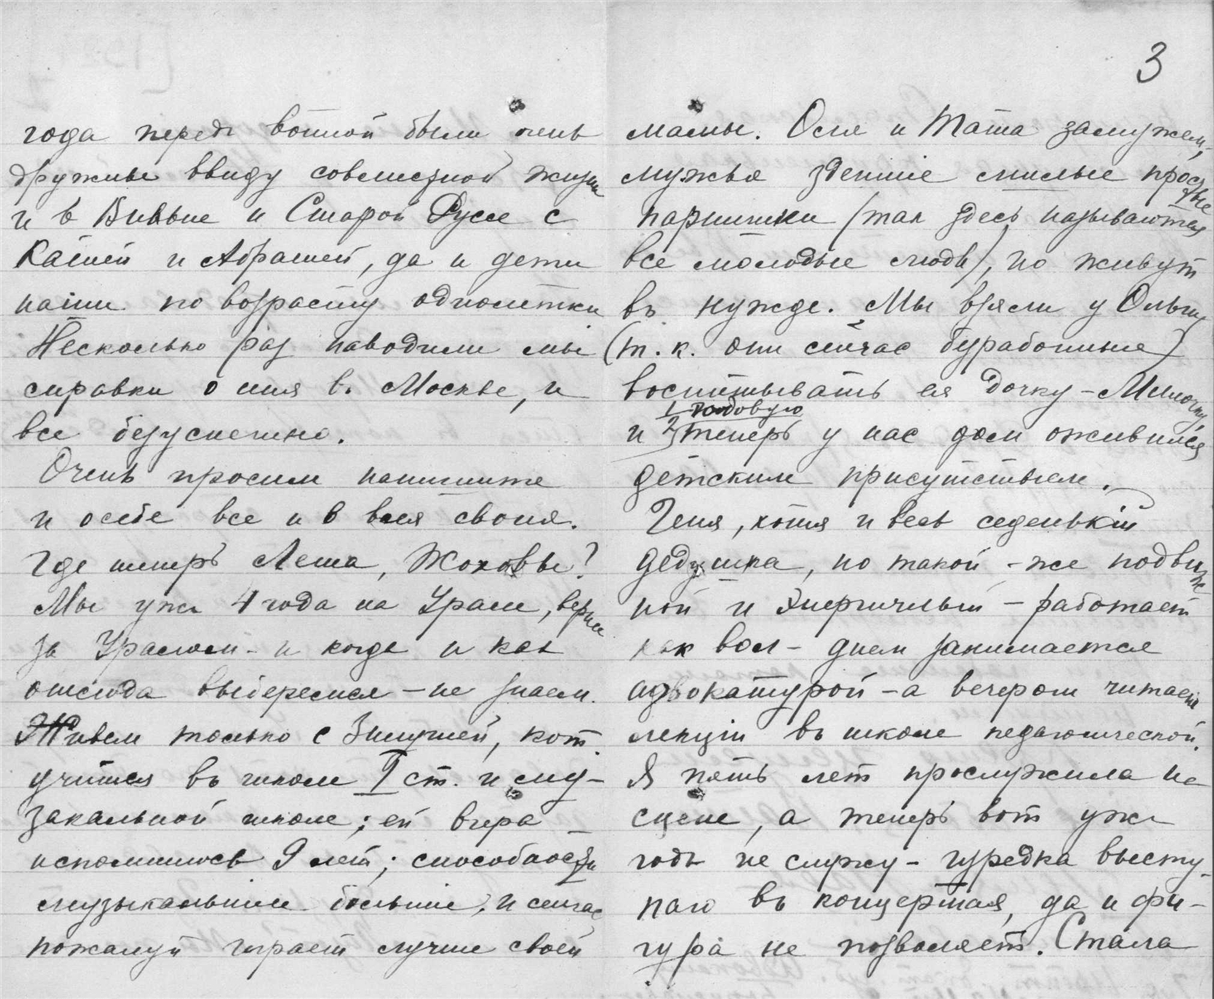 года передъ войной были очень
дружны ввиду совместной жизни
и в Вильне и Старой Руссе с
Катей и Абрашей, да и дети
наши по возрасту однолетки
Несколько раз наводили мы
справки о них в. Москве, и
все безуспешно.
Очень просим напишите
и о себе все и о всех своих.
Где теперь Леша, Жоховы?
Мы уже 4 года на Урале, вернее
за Уралом - и когда и как
отсюда выберемся - не знаем.
Живем только с Зинушей, кот.
учится въ школе I ст. и му-
зыкальной школе; ей вчера
исполнилось 9 лет; способности
музыкальные большие, и сейчас
пожалуй играет лучше своей
3
мамы. Оля и Тата замужем,
мужья здешние милые простые
парнишки (так здесь называются
все молодые люди), но живут
въ нужде. Мы взяли у Ольги
(т. к. они сейчас безработные)
воспитывать ея дочку - Милочку
1 годовую
и теперь у нас дом оживился
детским присутствием.
Геня, хотя и весь седенькій
дедушка, но такой-же подвиж-
ной и энергичный - работает
как вол - днем занимается
адвокатурой - а вечером читает
лекціи въ школе педагогической.
Я пять лет прослужила на
сцене, а теперь вот уже
годъ не служу - изредка высту-
паю въ концертах, да и фи-
гура не позволяет. Стала